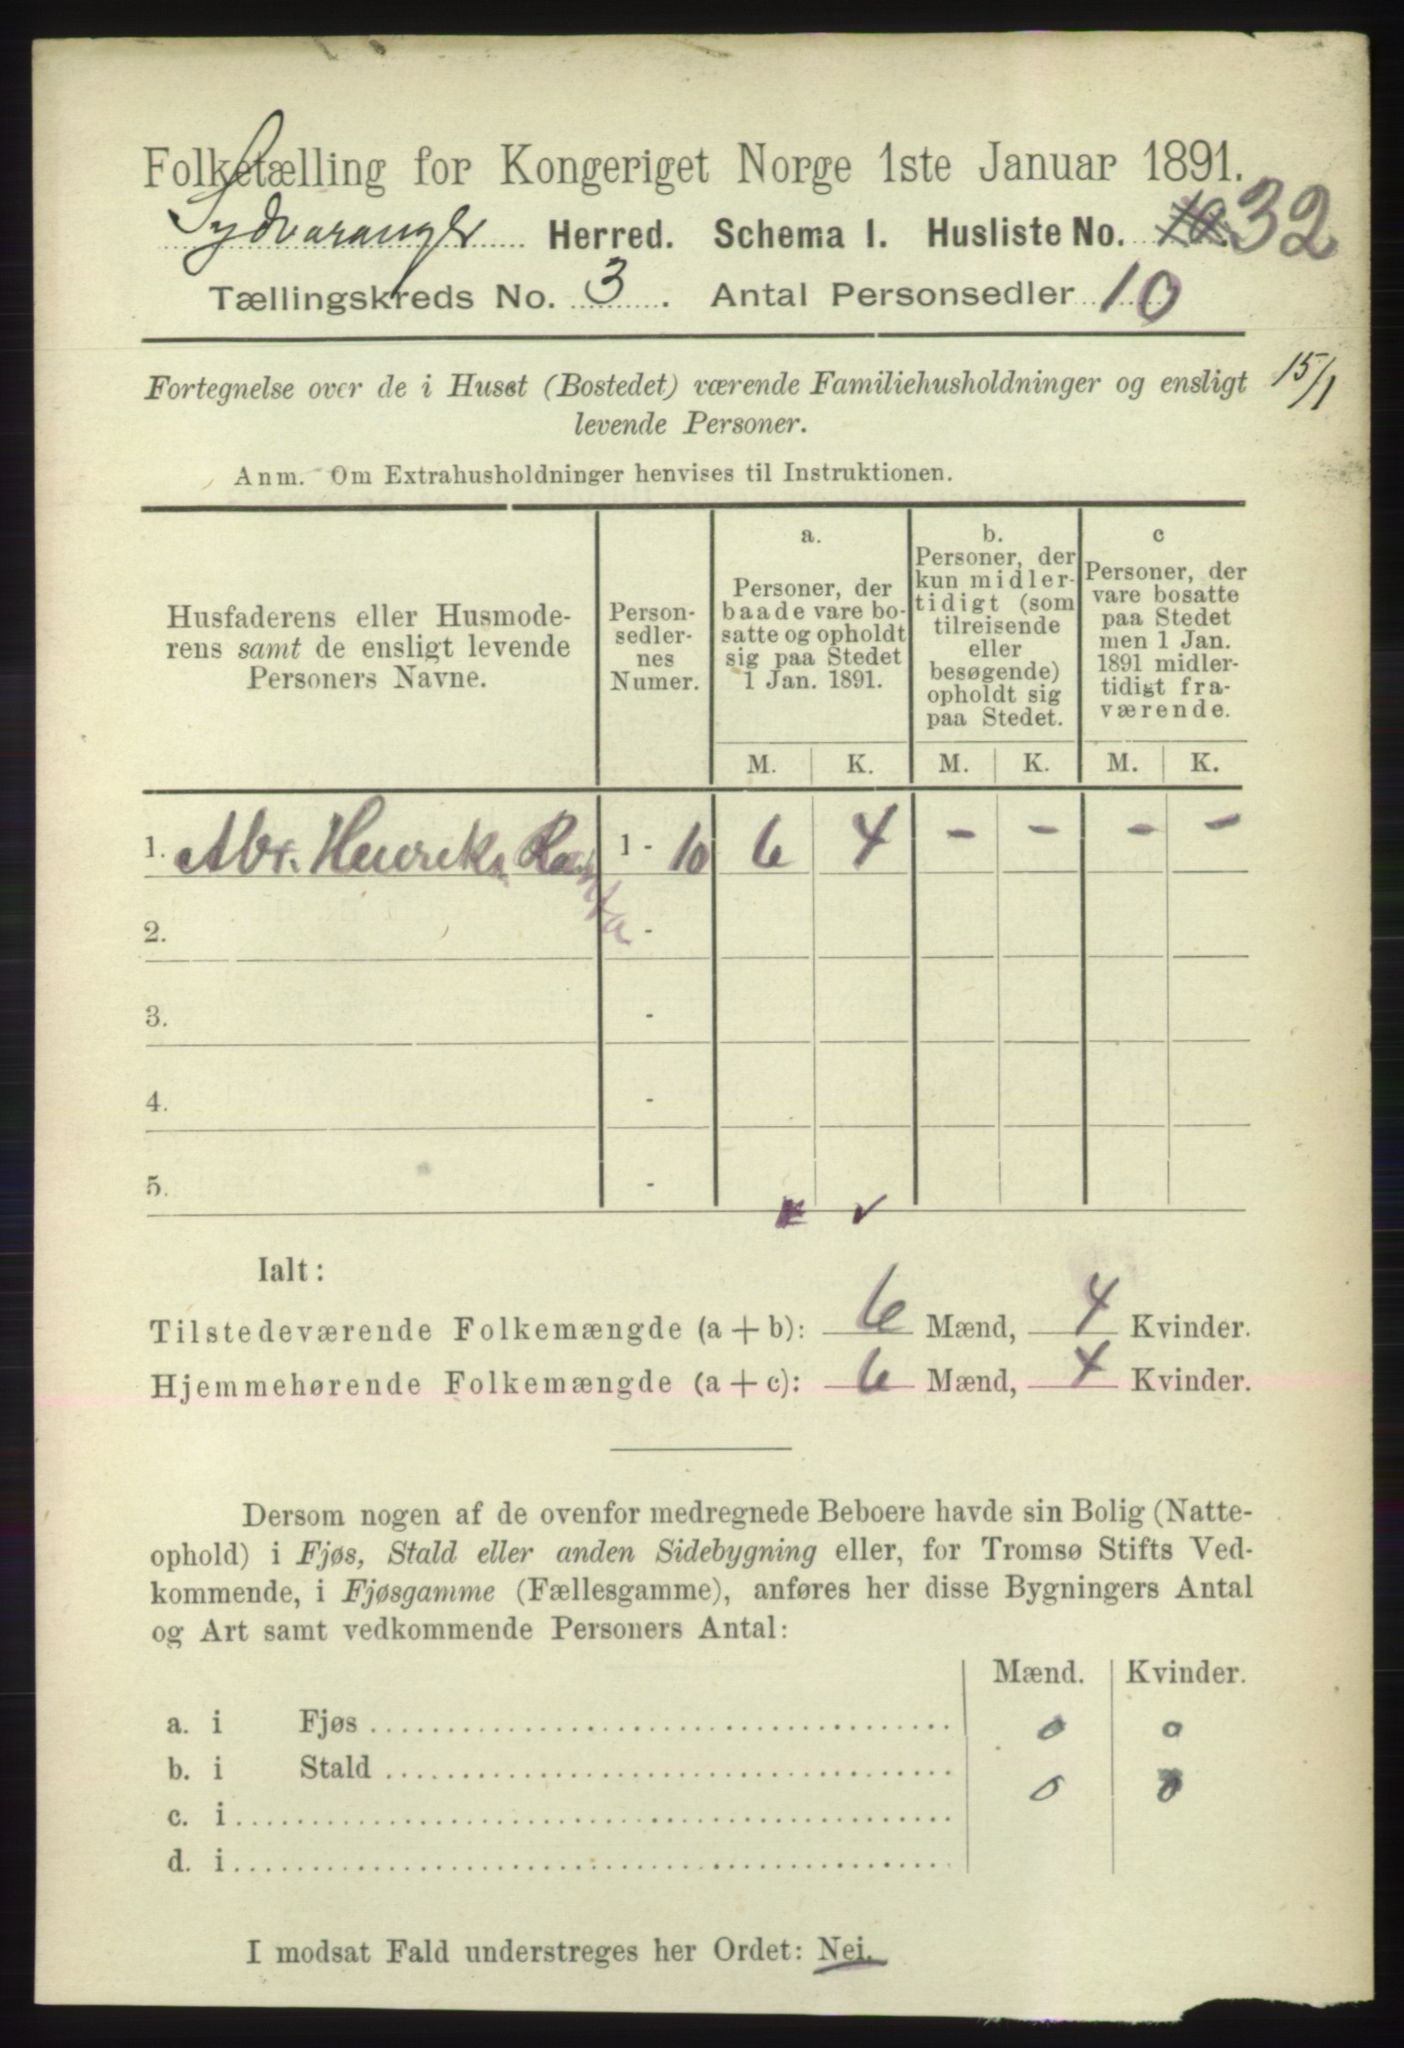 Folketælling for Kongeriget Norge 1ste Januar 1891.
Sydvaranger Herred. Schema I. Husliste No. 32
Tællingskreds No. 3. Antal Personsedler 10
15/1
Fortegnelse over de i Huset (Bostedet) værende Familiehusholdninger og ensligt
levende Personer.
Anm. Om Extrahusholdninger henvises til Instruktionen.
Husfaderens eller Husmode-
rens samt de ensligt levende
Personers Navne.
Person-
sedler-
nes
Numer.
a.
Personer, der
baade vare bo-
satte og opholdt
sig paa Stedet
1 Jan. 1891.
b.
Personer, der
kun midler-
tidigt (som
tilreisende
eller
besøgende)
opholdt sig
paa Stedet.
c
Personer, der
vare bosatte
paa Stedet
men 1 Jan.
1891 midler-
tidigt fra-
værende.
M. K. M. K. M. K.
1. Abr. Henriks. Ranta 1 - 10 6 4 - - - -
2. -
3. -
4. -
5. -
Ialt:
Tilstedeværende Folkemængde (a + b): 6 Mænd, 4 Kvinder.
Hjemmehørende Folkemængde (a + c): 6 Mænd, 4 Kvinder.
Dersom nogen af de ovenfor medregnede Beboere havde sin Bolig (Natte-
ophold) i Fjøs, Stald eller anden Sidebygning eller, for Tromsø Stifts Ved-
kommende, i Fjøsgamme (Fællesgamme), anføres her disse Bygningers Antal
og Art samt vedkommende Personers Antal:
Mænd. Kvinder.
a. i Fjøs 0 0
b. i Stald 0 0
c. i
d. i
I modsat Fald understreges her Ordet: Nei.